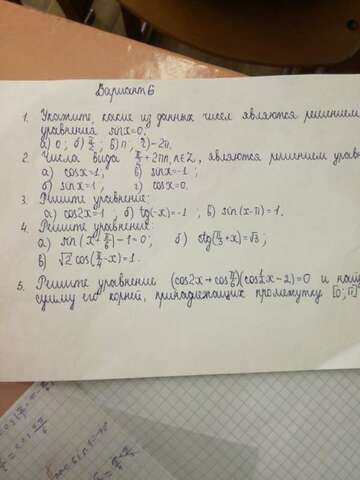 Вариант 6
1. Укажите, какие из данных чисел являются решением
уравнений sinx=0.
а) 0; б) π/2; в) π; г) -2π.
2. Числа вида π/2+2πn, n∈Z, являются решением уравн
а) cosx=1, в) sinx=-1;
б) sinx=1, г) cosx=0.
3. Решите уравнение:
а) cos2x=1; б) tg(-x)=-1; в) sin(x-π)=1.
4. Решите уравнения:
а) sin(x+π/6)-1=0; б) ctg(π/3+x)=√3;
в) √2 cos(π/4-x)=1.
5. Решите уравнение (cos2x+cosπ/6)(cos½x-2)=0 и найд
сумму его корней, принадлежащих промежутку [0;π]